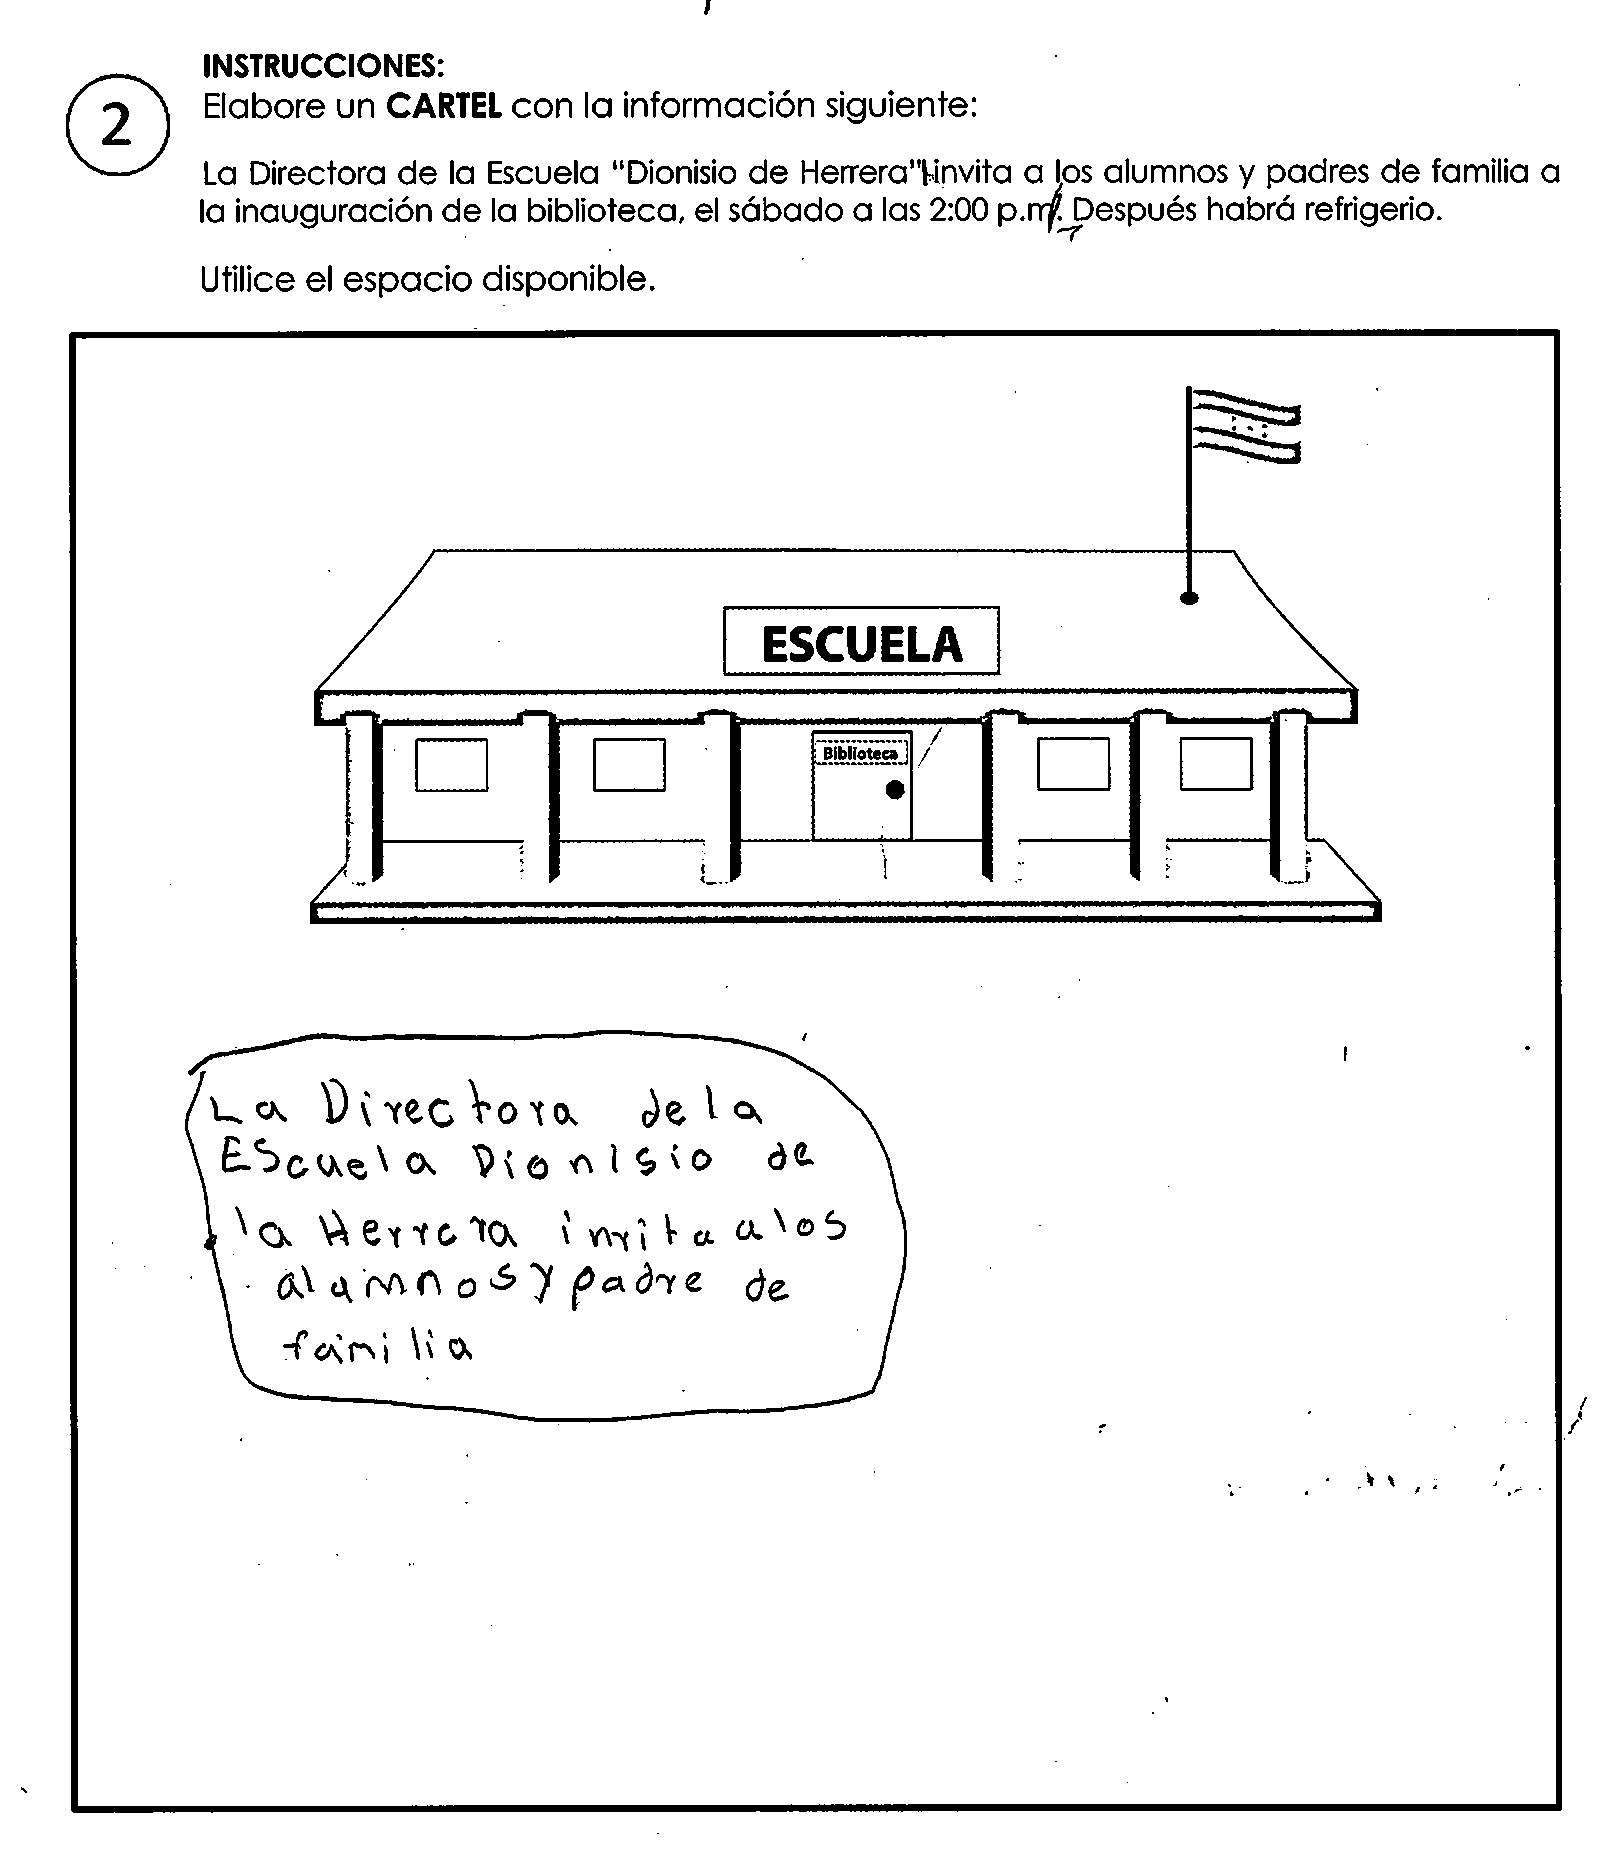 INSTRUCCIONES:
2
Elabore un CARTEL con la información siguiente:
La Directora de la Escuela "Dionisio de Herrera" invita a los alumnos y padres de familia a
la inauguración de la biblioteca, el sábado a las 2:00 p.m. Después habrá refrigerio.
Utilice el espacio disponible.
ESCUELA
Biblioteca
La Directora dela
EScuela Dionisio de
la Herrera invita alos
alumnos y padre de
familia